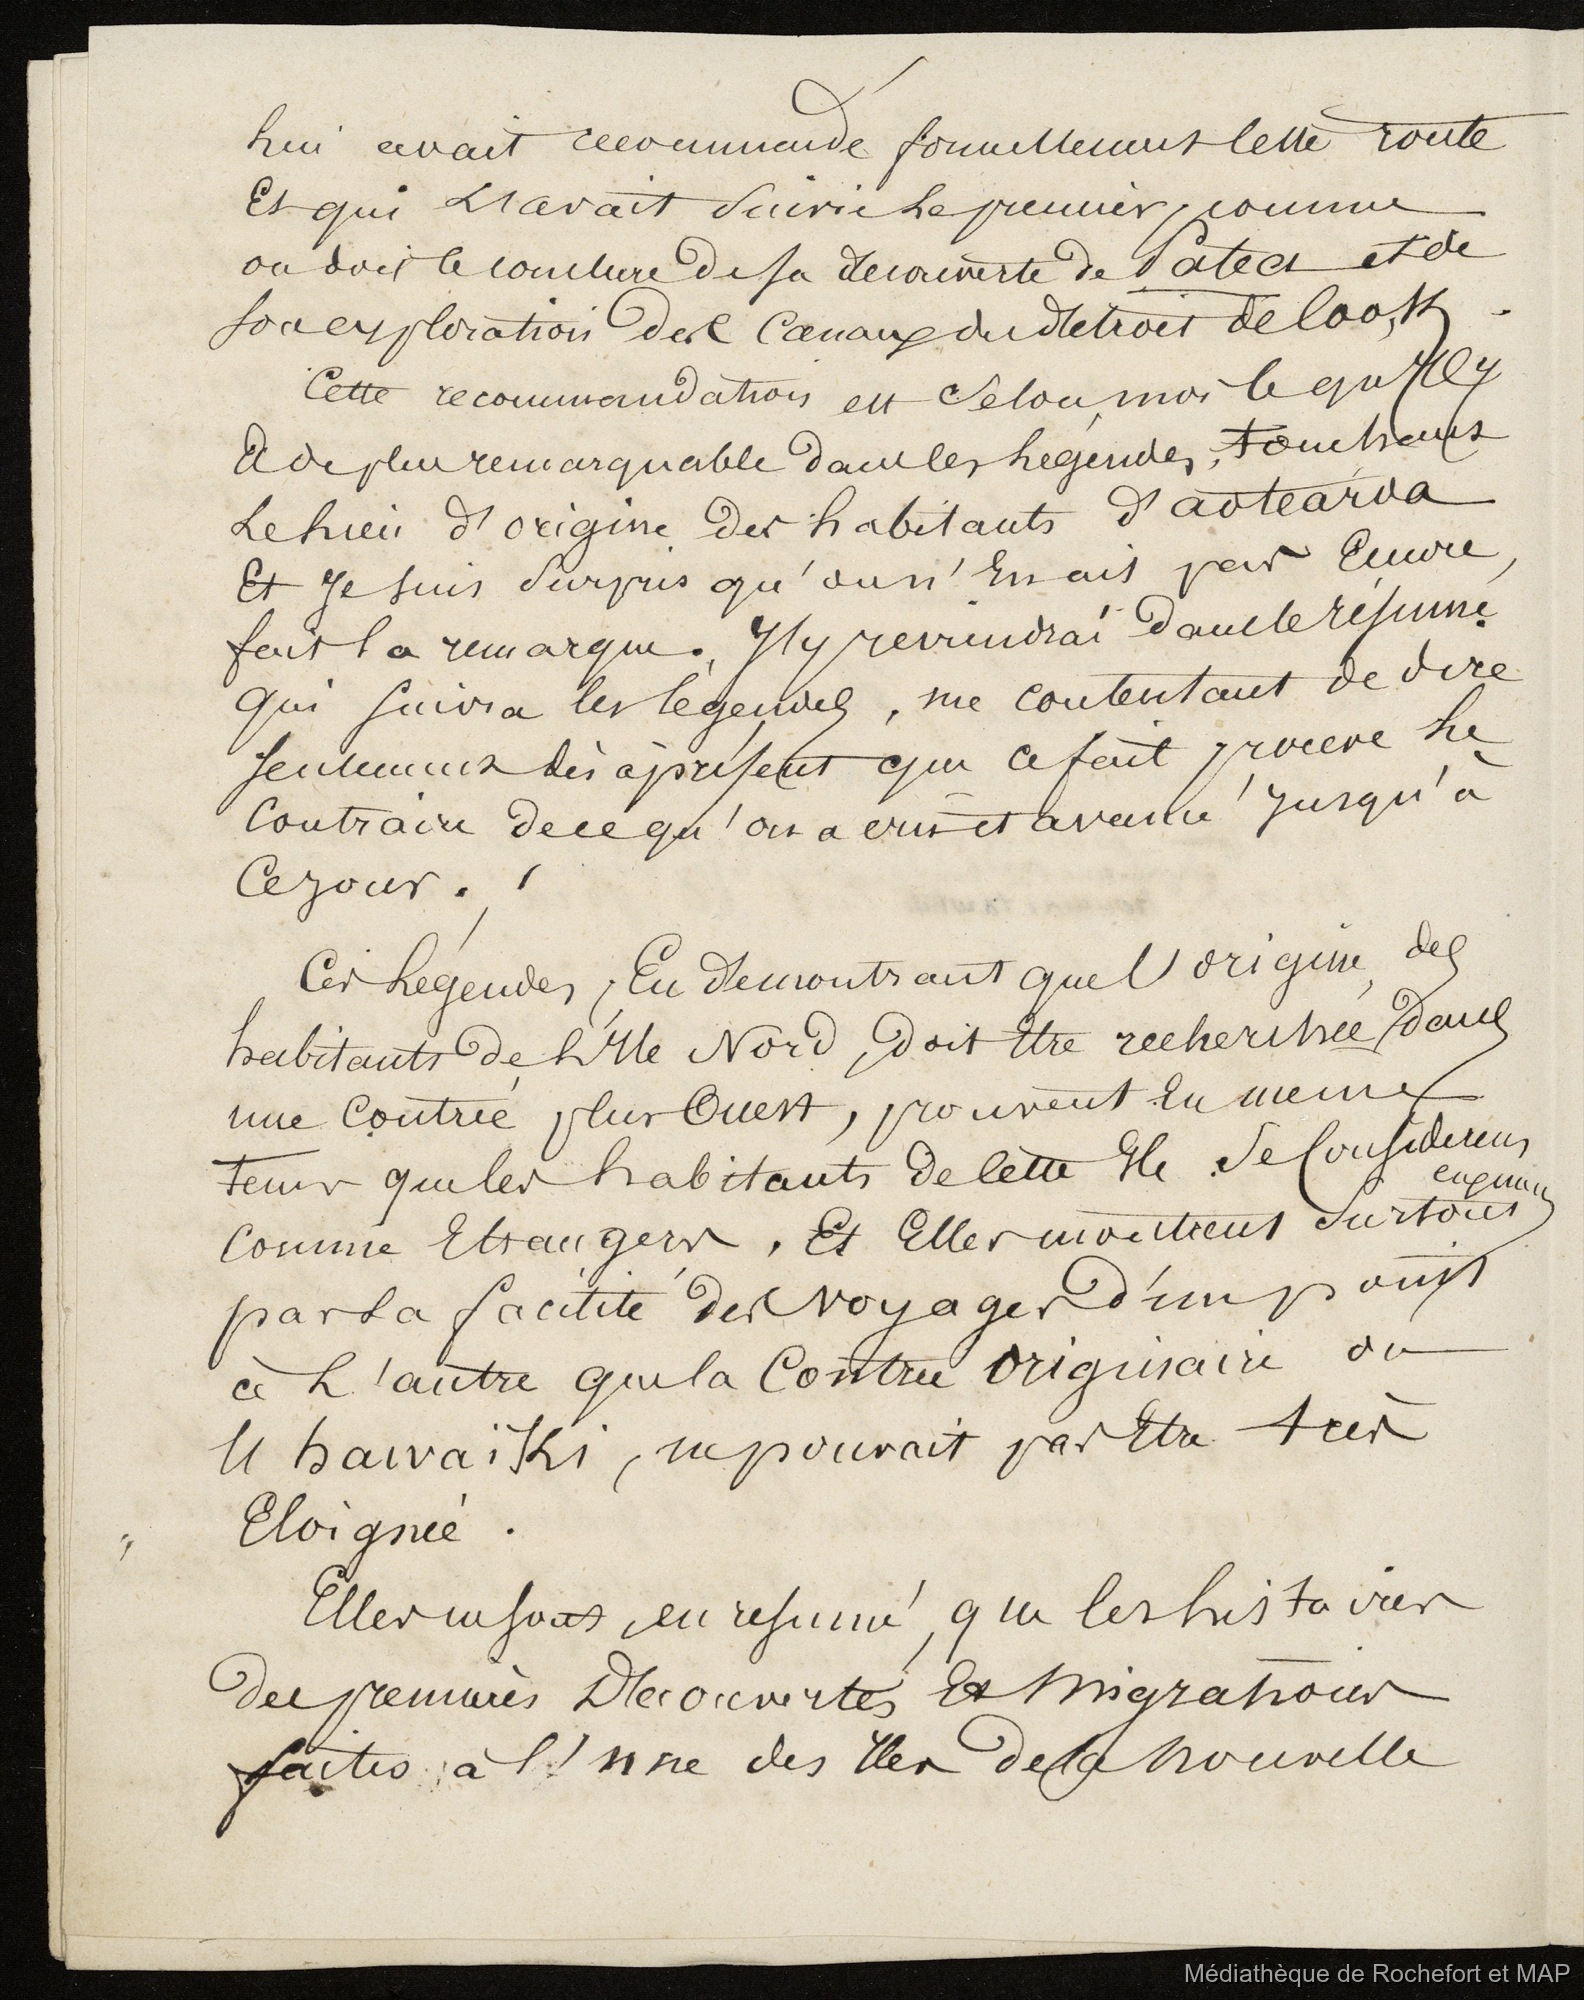 lui avait recommandé formellement cette route
Et qui L'avait Suivie Le premier, comme
on doit le conclure de sa decouverte de Patea et de
son exploration des Canaux du detroit de Cook.
Cette recommandation est Selon moi ce qu'Il y
A de plus remarquable dans les Légendes, touchant
Le Lieu d'origine des habitants d'aotearoa
Et Je suis Surpris qu'on n'En ait pas Encore,
fait la remarque. J'y reviendrai dans le résumé
qui suivra les légendes, me contentant de dire
seulement dès àprésent que ce fait prouve Le
Contraire de ce qu'on a cru et avancé Jusqu'à
Ce jour.
Ces Légendes, En demontrant que l'origine des
habitants de L'Ile Nord, doit Etre recherchée dans
une Contrée plus Ouest, prouvent En meme
Tems que les habitants de cette Ile Se Considerent
comme Etrangers. Et Elles montrent Surtout
par La facilité des Voyages d'un point
à L'autre que la Contrée Originaire ou
l'hawaïki, ne pouvait pas Etre très
Eloignée.
Elles ne sont, en resumé, que les histoires
des premières Decouvertes Et Migrations
faites à l'une des Iles de la Nouvelle
Médiathèque de Rochefort et MAP